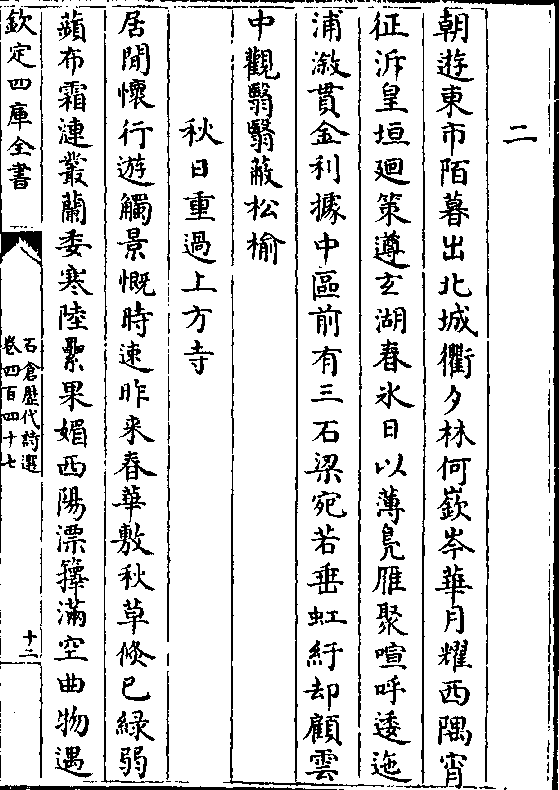 二
朝遊東市陌暮出北城衢夕林何嶔岑華月耀西隅宵
征泝皇垣廻策遵玄湖春氷日以薄鳬雁聚喧呼逶迤
浦溆貫金利據中區前有三石梁宛若垂虹紆却顧雲
中觀翳翳蔽松榆
秋日重過上方寺
居閒懷行遊觸景慨時速昨来春華敷秋草倐已綠弱
蘋布霜漣叢蘭委寒陸纍果媚西陽漂籜滿空曲物遇
欽定四庫全書
石倉歷代詩選
卷四百四十七
十二